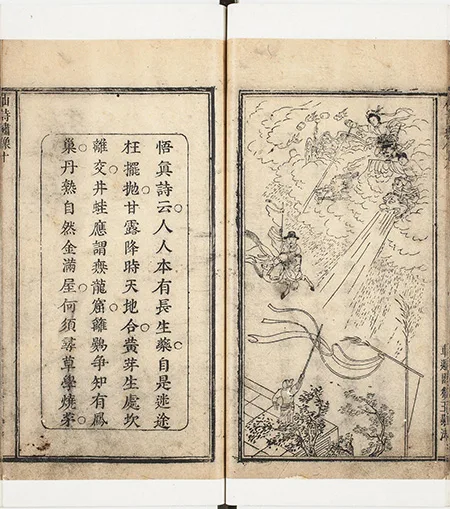 車遲國猴王顯法
悟真詩云人人本有長生藥自是迷途
枉擺拋甘露降時天地合黃芽生處坎
離交井蛙應謂無龍窟籬鷃爭知有鳳
巢丹熟自然金滿屋何須尋草學燒茅